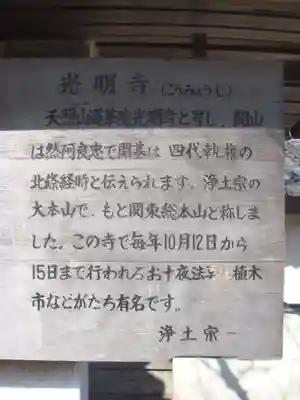 光明寺（こうみょうじ）
天照山蓮華院光明寺と号し、開山
は然阿良忠で開基は 四代執権の
北條経時と伝えられます。浄土宗の
大本山で、もと関東総本山と称しま
した。この寺で毎年10月12日から
15日まで行われるお十夜法 植木
市などがたち有名です。
浄土宗